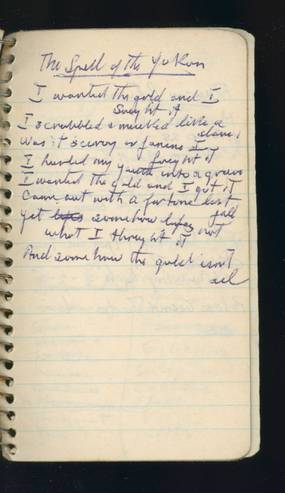 The Spell of the Yukon
I wanted the gold and I
Sought it
I scrabbled & mucked like a
slave.
Was it scurvy or famine I
fought it
I hurled my youth into a grave
I wanted the gold and I got it
Came out with a fortune last
fall
Yet somehow lifes not
what I thought it
And somehow the gold isn't
all